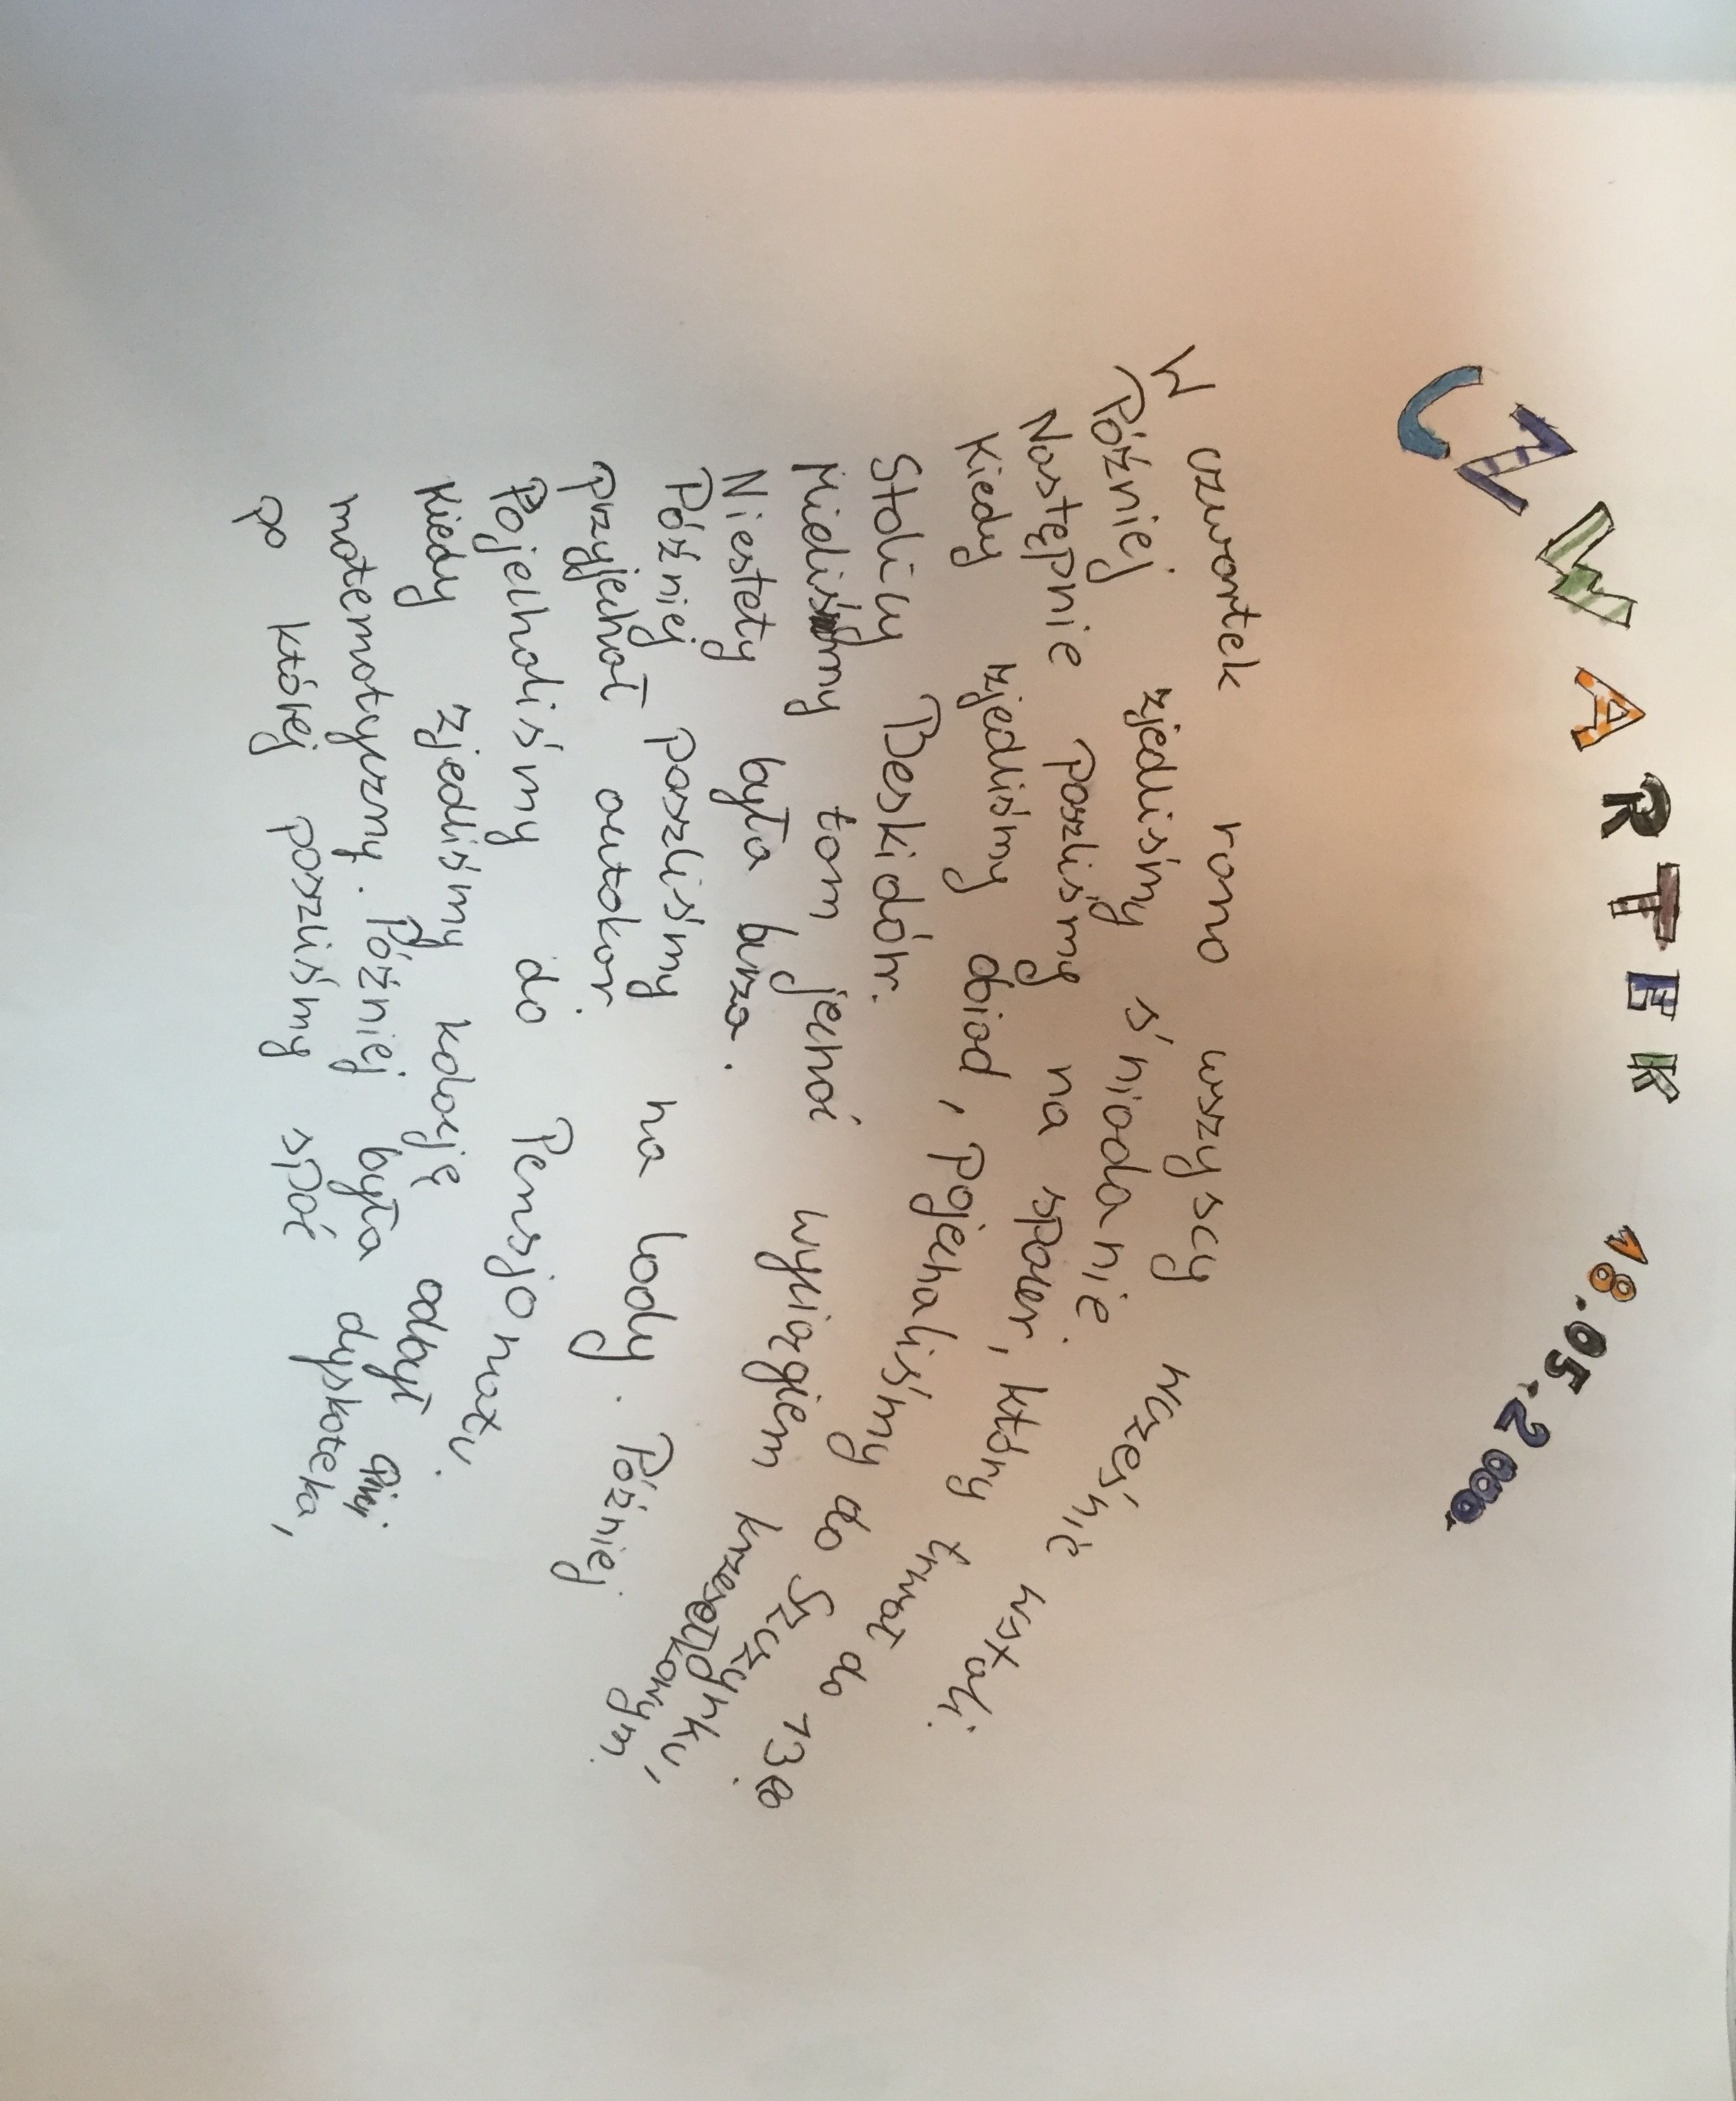 CZWARTEK 18.05.2000.
W czwartek rano wszyscy wcześnie wstali.
Później zjedliśmy śniadanie.
Następnie poszliśmy na spacer, który trwał do 13⁰⁰
Kiedy zjedliśmy obiad, pojechaliśmy do Szczyrku,
Stolicy Beskidów.
Mieliśmy tam jechać wyciągiem krzesełkowym.
Niestety była burza.
Później poszliśmy na lody. Później
przyjechał autokar.
Pojechaliśmy do Pensjonatu.
Kiedy zjedliśmy kolację odbył się
matematyczny. Później była dyskoteka,
po której poszliśmy spać